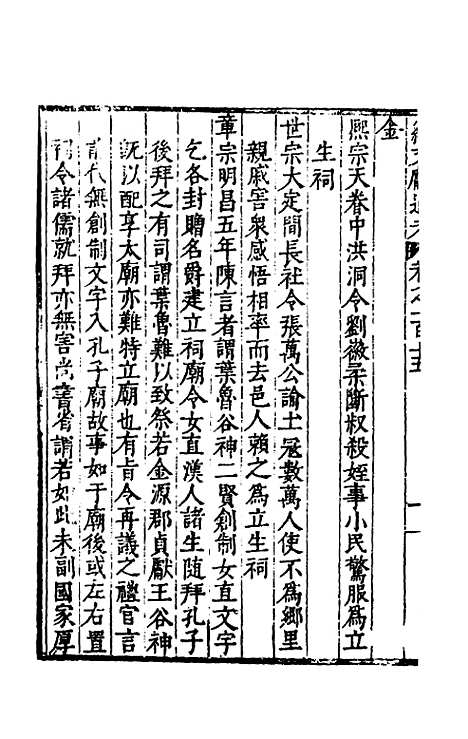 續文獻通考 卷之一百十五
金
熙宗天眷中洪洞令劉徽柔斷叔殺姪事小民驚服爲立
生祠
世宗大定間長社令張萬公諭土冦數萬人使不爲鄉里
親戚害衆感悟相率而去邑人賴之爲立生祠
章宗明昌五年陳言者謂葉魯谷神二賢創制女直文字
乞各封贈名爵建立祠廟令女直漢人諸生随拜孔子
後拜之有司謂葉魯難以致祭若金源郡貞獻王谷神
旣以配享太廟亦難特立廟也有㫖令再議之禮官言
前代無創制文字入孔子廟故事如于廟後或左右置
祠令諸儒就拜亦無害尚書省謂若如此未副國家厚